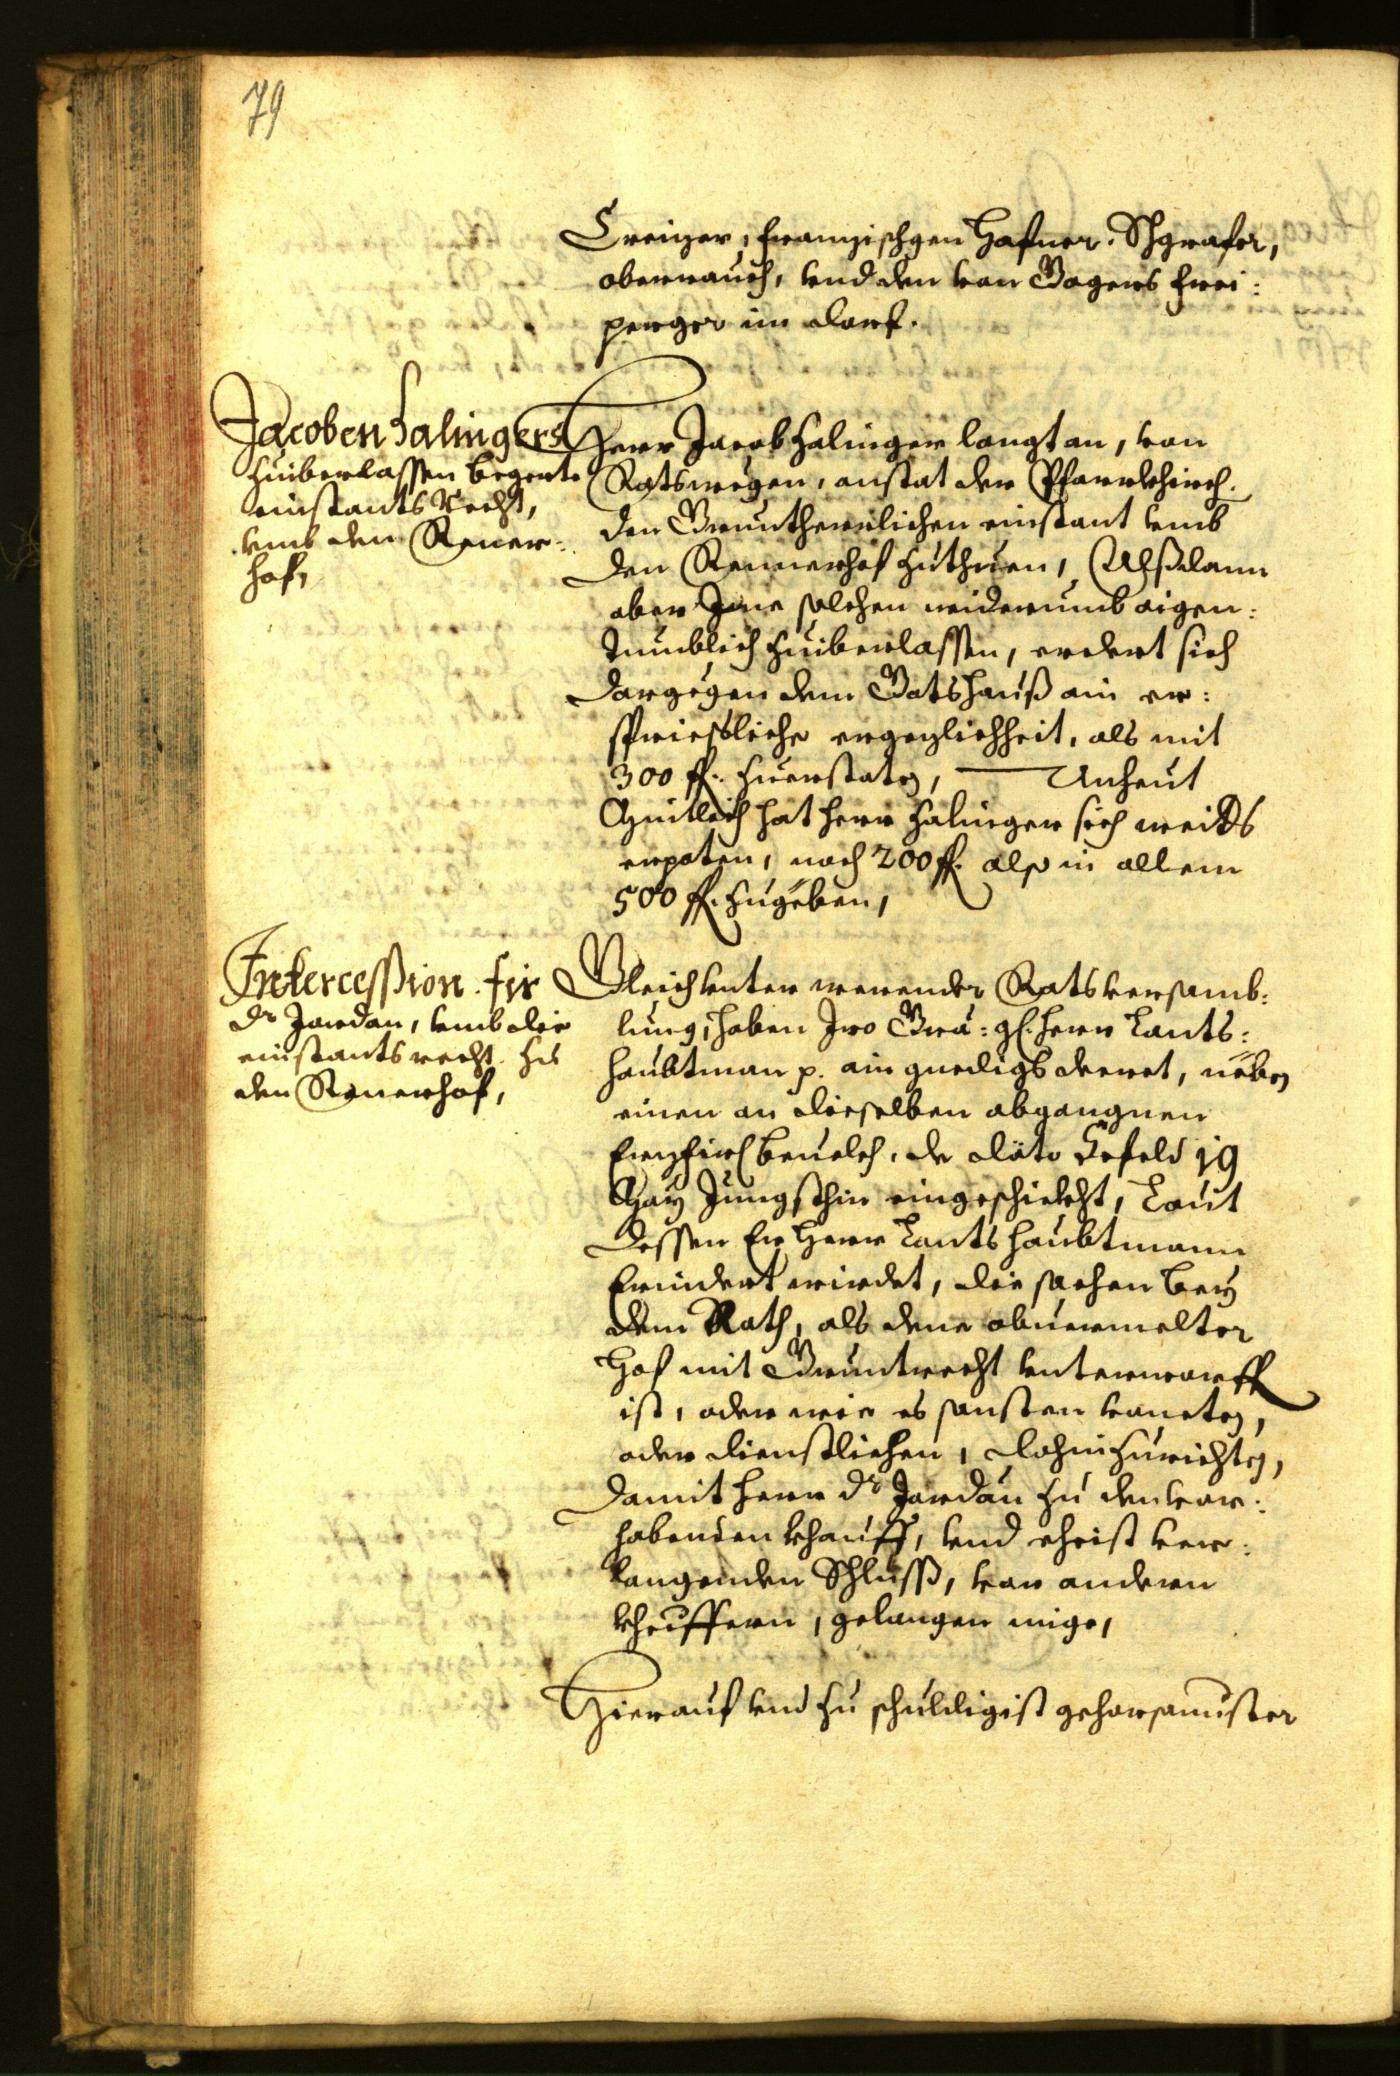 79
Creizer, Franzischgen Hafner. Schgrafer,
obernauch, vnd den von Wagers frei:
perger im dorf.
Jacoben Halingers
zuiberlassen begerte
einstants Recht,
vmb den Rener-
hof,
Herr Jacob Halinger langt an, von
Ratswegen, anstat der Pfarrkhirch.
den Gruntherrlichen einstant vmb
den Rennerhof zuthuen, Alßdann
aber Ime solchen widerumb aigen:
tumblich zuiberlassen, erdert sich
dargegen dem Gotshauß ain er:
sprießliche ergezlichheit, als mit
300 fl. zuerstaten, Anheut
Mintlich hat herr Halinger sich weiters
erpoten, noch 200 fl. also in allem
500 fl. zugeben,
Intercession. fir
Dr Jordan, vmb die
einstants recht zu
den Renerhof,
Gleich vnter werender Ratsversamb:
lung, haben Iro Gra: gl. herr Lants:
haubtman p. ain gnedigs decret, neben
einen an dieselben abgangnen
Erzfirstl beuelch, de dato Seefeld 19
May Jungsthin eingeschickht, Laut
dessen Er Herr Lantshaubtmann
Erindert wirdet, die sachen bey
dem Rath, als dene obuermelter
Hof mit Gruntrecht vnterworffen
ist, oder wie es sonsten konten,
oder dienstlichen, dahinzurichten,
damit herr Dr Jordan zu den vor:
habenden khauff, vnd ehrist ver:
langenden Schluss, vor anderen
kheuffern, gelangen mige,
Hierauf vnd zu schuldigist gehorsamister